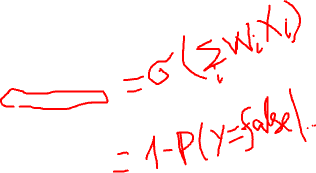 = σ(Σ_i W_i X_i)
= 1-P(Y=false|..